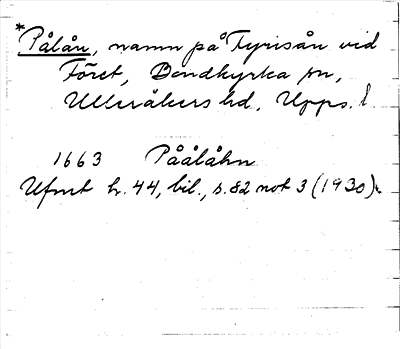 *Pålån, namn på Fyrisån vid
Föret, Bondkyrka sn,
Ulleråkers hd, Upps. l.
1663 Påålåhn
Ufmt h. 44, bil., s. 82 not 3 (1930).